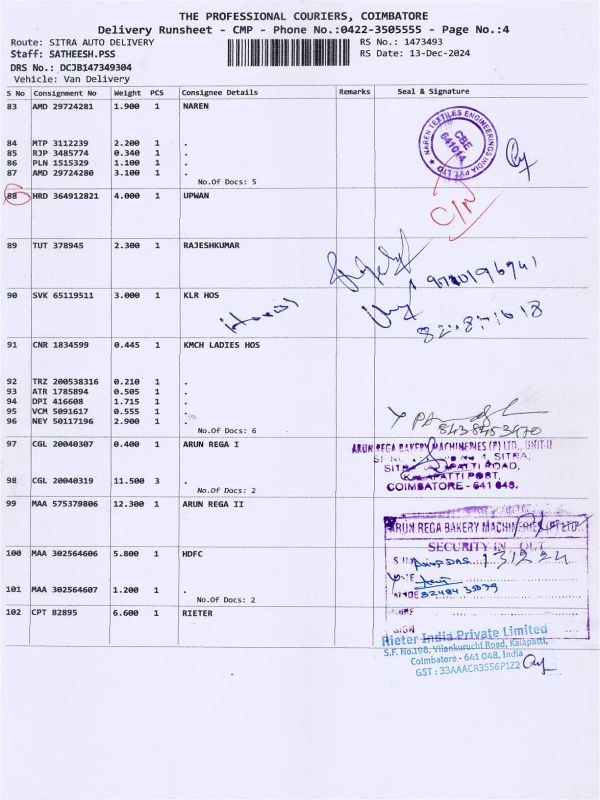 THE PROFESSIONAL COURIERS, COIMBATORE
Delivery Runsheet - CMP - Phone No.:0422-3505555 - Page No.:4
Route: SITRA AUTO DELIVERY RS No.: 1473493
Staff: SATHEESH.PSS RS Date: 13-Dec-2024
DRS No.: DCJB147349304
Vehicle: Van Delivery
S No Consignment No Weight PCS Consignee Details Remarks Seal & Signature
83 AMD 29724281 1.900 1 NAREN
NAREN TEXTILES ENGINEERINGS INDIA PVT LTD
CBE
641014
84 MTP 3112239 2.200 1 .
85 RJP 3485774 0.340 1 .
86 PLN 1515329 1.100 1 .
87 AMD 29724280 3.100 1 .
No.Of Docs: 5
88 HRD 364912821 4.000 1 UPWAN
C/N
89 TUT 378945 2.300 1 RAJESHKUMAR
90 SVK 65119511 3.000 1 KLR HOS
91 CNR 1834599 0.445 1 KMCH LADIES HOS
92 TRZ 200538316 0.210 1 .
93 ATR 1785894 0.505 1 .
94 DPI 416608 1.715 1 .
95 VCM 5091617 0.555 1 .
96 NEY 50117196 2.900 1 .
No.Of Docs: 6
97 CGL 20040307 0.400 1 ARUN REGA I
ARUN REGA BAKERY MACHINERIES (P) LTD., UNIT-II
SITRA,
KALAPATTI ROAD,
KALAPATTI POST,
COIMBATORE - 641 048.
98 CGL 20040319 11.500 3 .
No.Of Docs: 2
99 MAA 575379806 12.300 1 ARUN REGA II
ARUN REGA BAKERY MACHINERIES (P) LTD.
SECURITY IN OUT
100 MAA 302564606 5.800 1 HDFC
13 12 24
101 MAA 302564607 1.200 1 .
No.Of Docs: 2
102 CPT 82895 6.600 1 RIETER
SIGN
Rieter India Private Limited
S.F. No.198, Vilankuruchi Road, Kalapatti,
Coimbatore - 641 048, India
GST : 33AAACR3556P1Z2